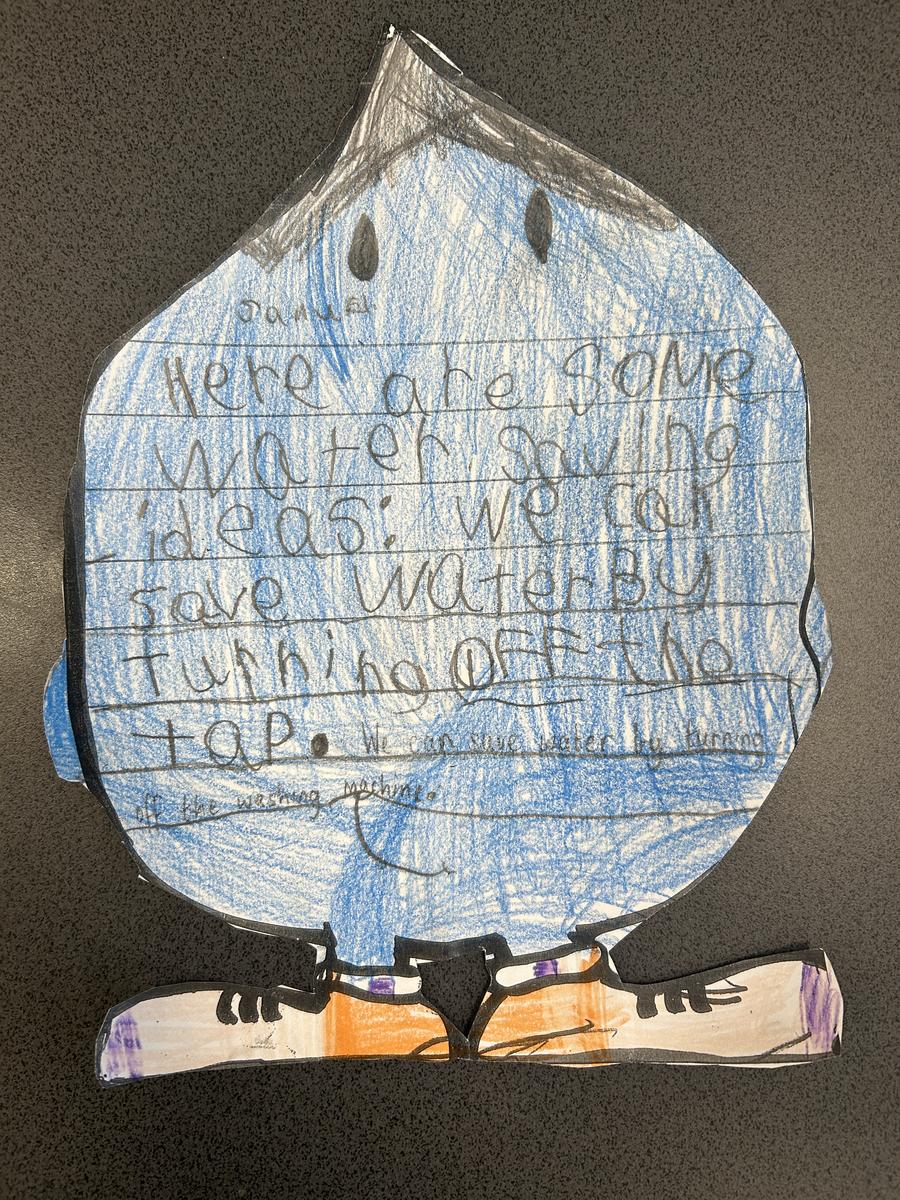 Here are some
water saving
ideas: we can
save water By
turning OFF the
tap. We can save water by turning
off the washing machine.